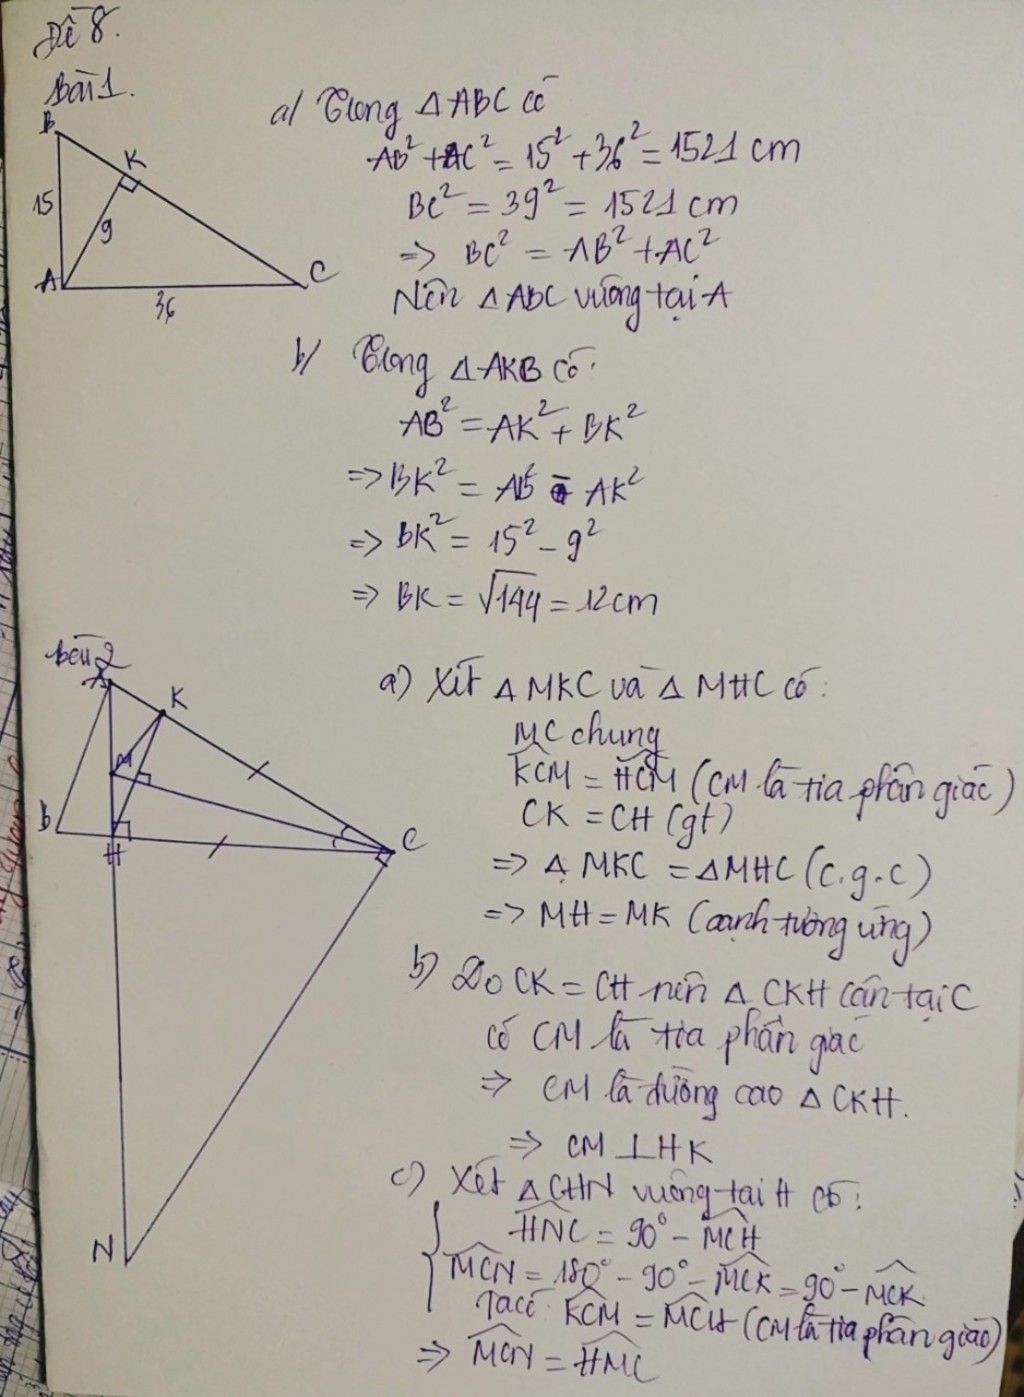 Đề 8.
Bài 1.
B
K
15
9
A
C
36
a/ Trong △ABC có
AB² + AC² = 15² + 36² = 1521 cm
BC² = 39² = 1521 cm
=> BC² = AB² + AC²
Nên △ABC vuông tại A
b/ Trong △AKB có:
AB² = AK² + BK²
=> BK² = AB² - AK²
=> BK² = 15² - 9²
=> BK = √144 = 12cm
Bài 2
A
K
M
B
H
C
N
a) Xét △MKC và △MHC có:
MC chung
KCM = HCM (CM là tia phân giác)
CK = CH (gt)
=> △MKC = △MHC (c.g.c)
=> MH = MK (cạnh tương ứng)
b) Do CK = CH nên △CKH cân tại C
có CM là tia phân giác
=> CM là đường cao △CKH.
=> CM ⊥ HK
c) Xét △CHN vuông tại H có:
HNC = 90° - MCH
MCN = 180° - 90° - MCK = 90° - MCK
Ta có: KCM = MCH (CM là tia phân giác)
=> MCN = HMC